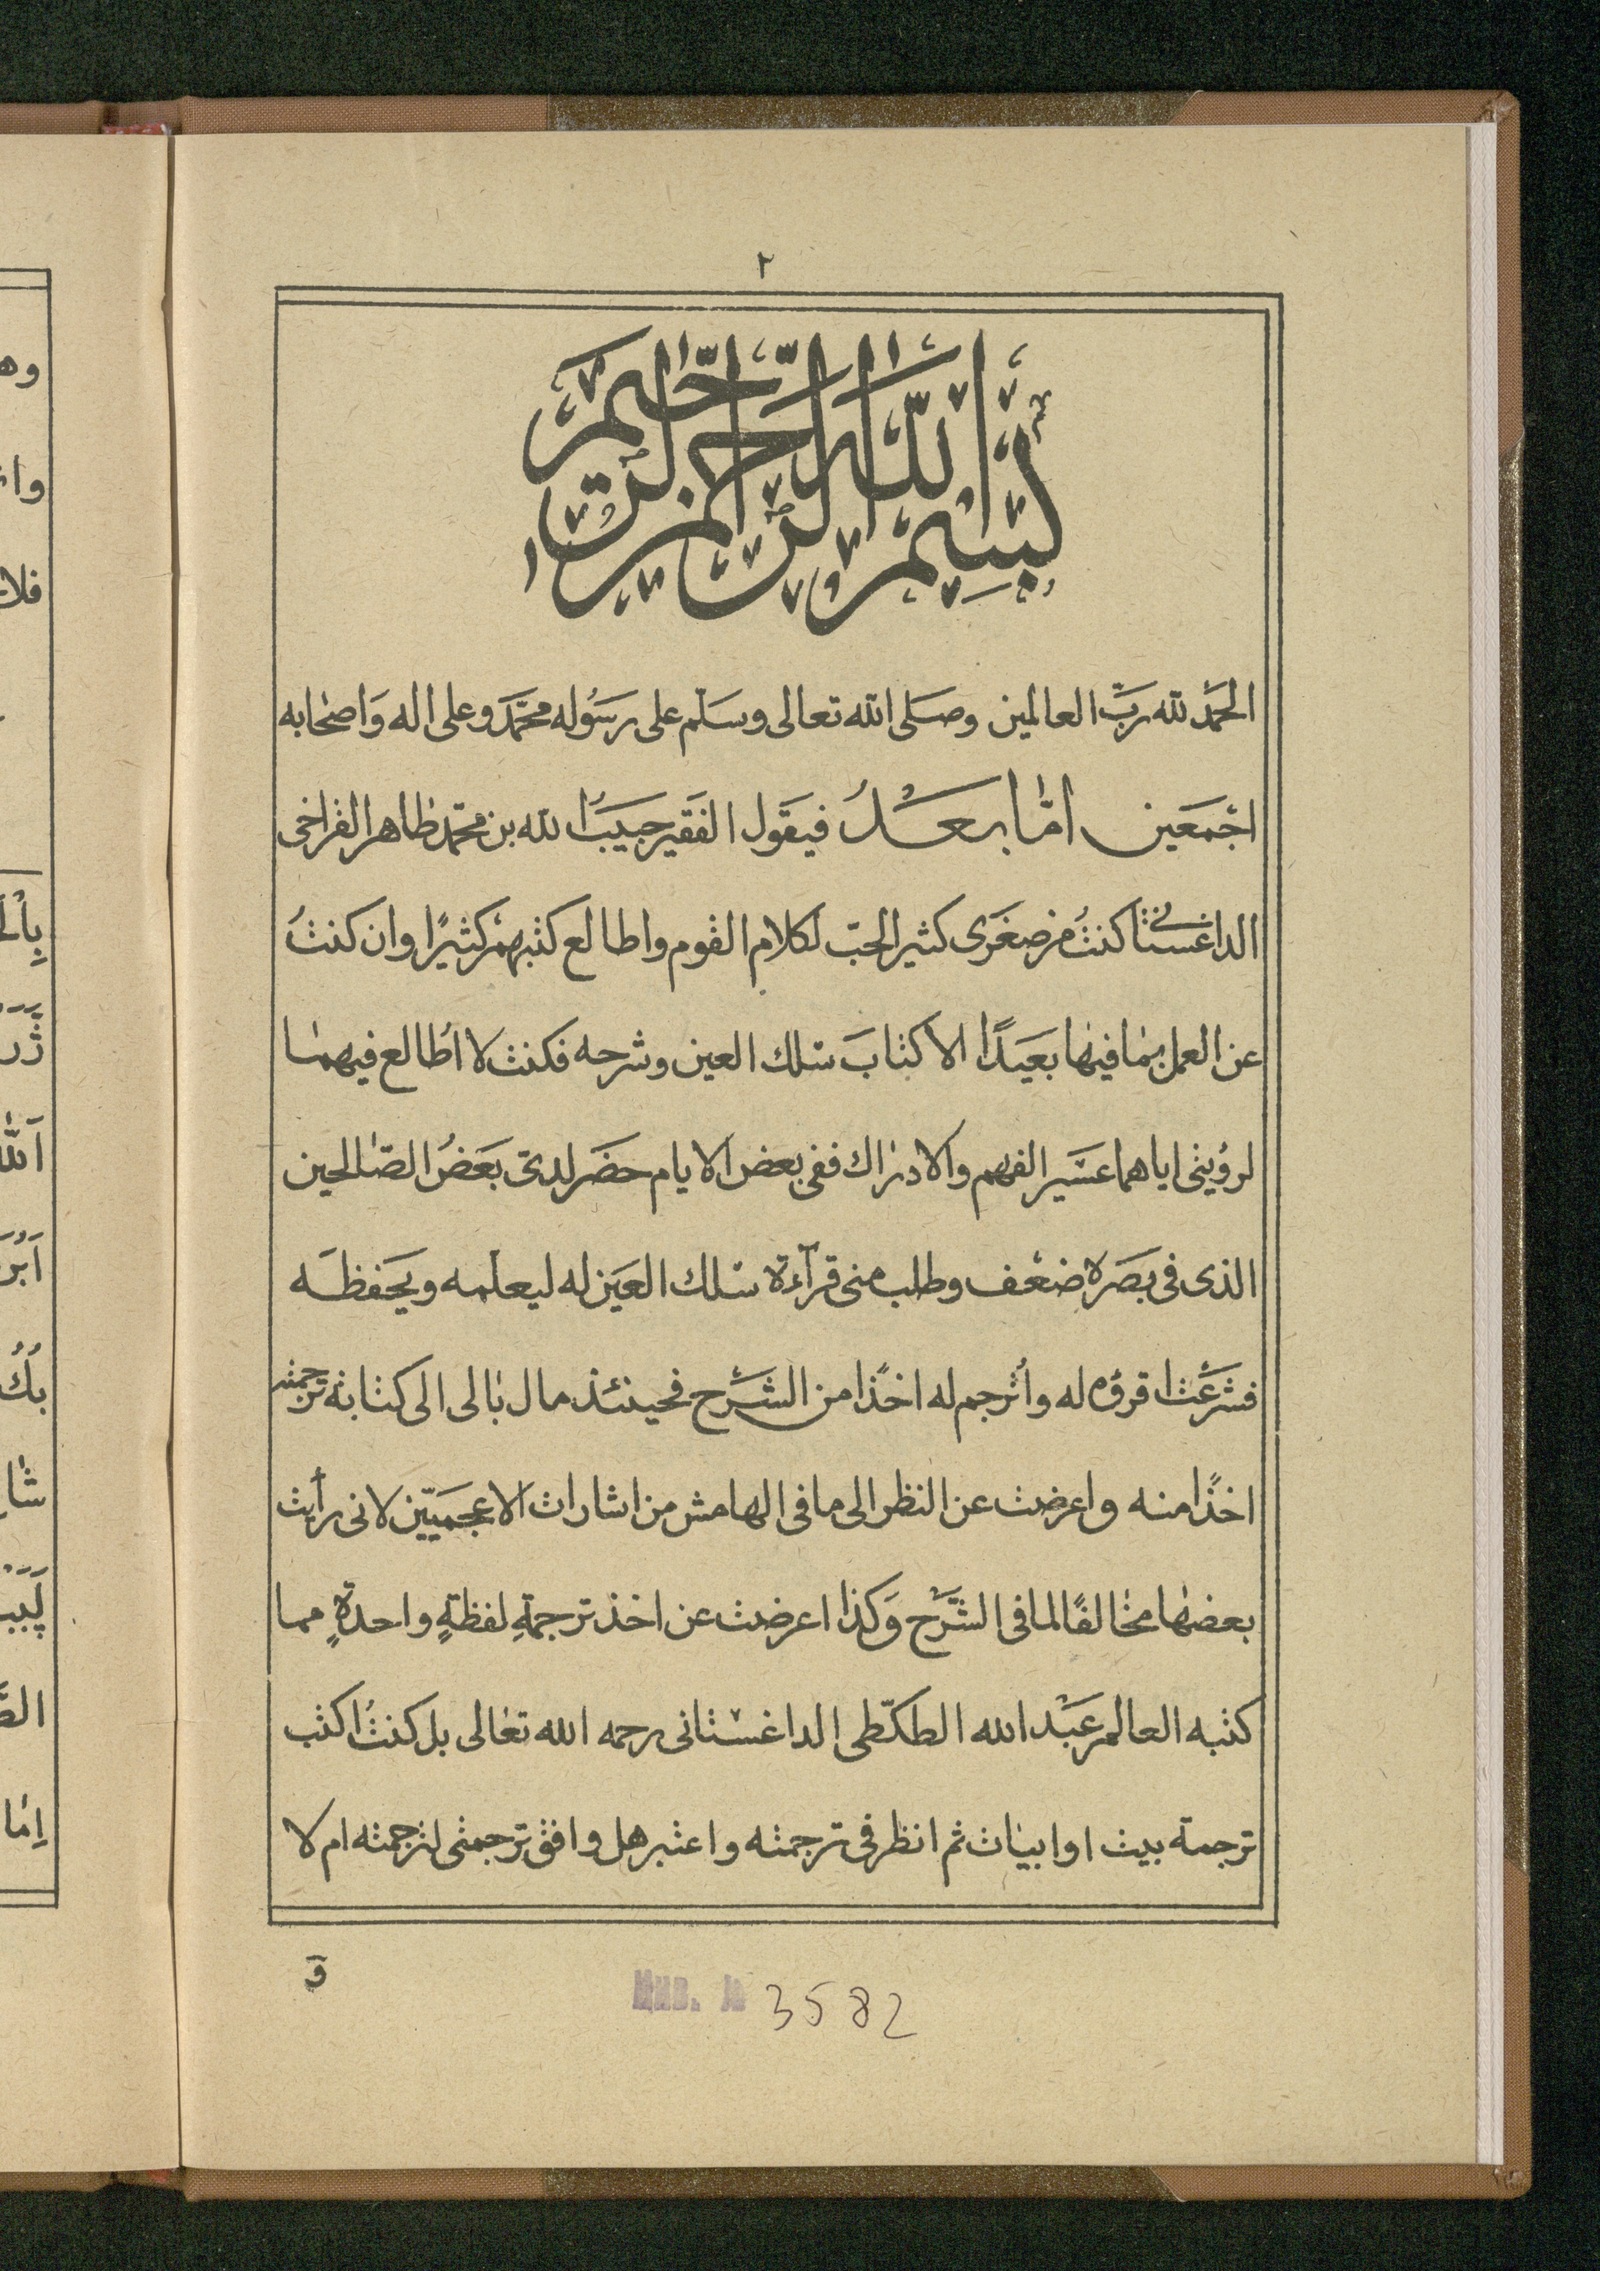 ٢
بِسْمِ اللّٰهِ الرَّحْمٰنِ الرَّحِيْمِ
الحمَد لله رَبّ العالمين وصَلى الله تعالى وسَلّم على رسَوُله محمّدَ وعلى اله وَاصحٰابه
اجْمَعَين امّٰا بعَدْ فيقَول الفَقير حبَيبُ الله بن محمّد طٰاهر القراخى
الداغستٰانى كنتُ من صغَرى كثير الحبّ لكلام القوم واطالع كتبهم كثيرًا وان كنتُ
عن العمل بمٰا فيهٰا بعَيدًا الا كتابَ سْلك العين وشرحه فكنت لا اطٰالع فيهمٰا
لرؤيتى اياهما عسَير الفهم والادرٰاك ففى بعض الايام حضَر لدىّ بعَضُ الصّٰالحين
الذى فى بصَره ضعْف وطلب منى قرآءة سْلك العيَن له ليعلّمه ويحَفظَه
فشرَعَت اقرؤه له واُترجم له اخذًا من الشَرْح فحينئذ مال بٰالى الى كتابة ترجمته
اخذًا منه واعرضت عن النظر الى ما فى الهامش من اشارات الاعجَميّين لانى رأيت
بعضهٰا مخٰالفًا لما فى الشَرْح وَكذا اعرضت عن اخذ ترجمةِ لفظةٍ واحدةٍ مما
كتبه العالم عبَْد الله الطكّطى الداغسْتانى رحمه الله تعٰالى بل كنتُ اكتب
ترجمة بيت او ابيٰات ثم انظر فى ترجمته واعتبر هل وافق ترجمتى لترجمته ام لا
و
Инв. № 3582